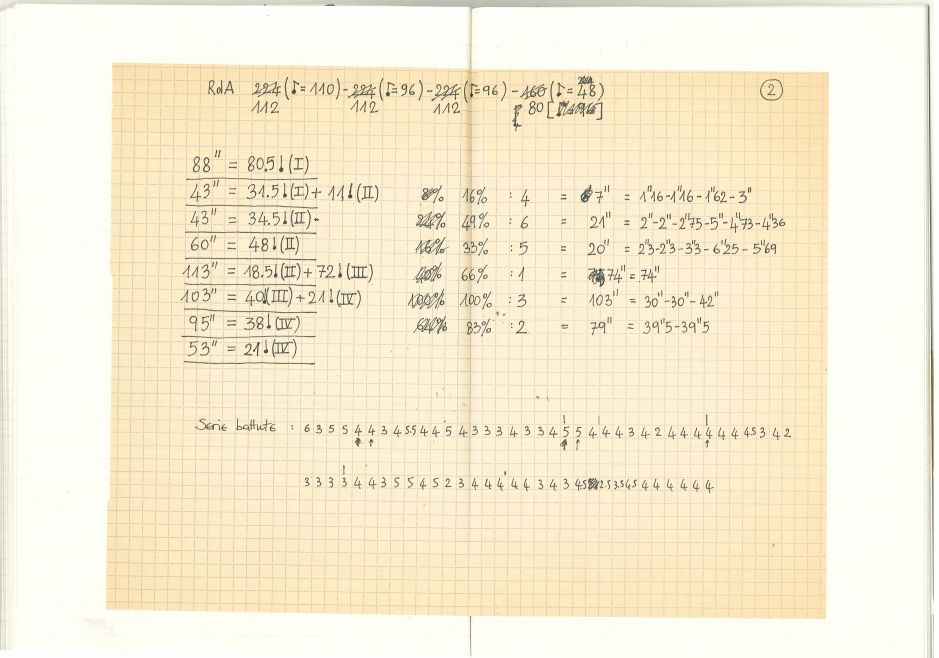 RdA 224 (♪=110) - 224 (♪=96) - 224 (♪=96) - 160 (♪=48) ②
112 112 112 80 [ ]
88" = 80.5♩(I)
43" = 31.5♩(I) + 11♩(II) 16% : 4 = 7" = 1"16-1"16-1"62-3"
43" = 34.5♩(II)- 49% : 6 = 21" = 2"-2"-2"75-5"-4"73-4"36
60" = 48♩(II) 33% : 5 = 20" = 2"3-2"3-3"3-6"25-5"69
113" = 18.5♩(II) + 72♩(III) 66% : 1 = 74" = 74"
103" = 40♩(III) + 21♩(IV) 100% : 3 = 103" = 30"-30"-42"
95" = 38♩(IV) 83% : 2 = 79" = 39"5-39"5
53" = 21♩(IV)
Serie battute : 6 3 5 5 4 4 3 4 5.5 4 4 5 4 3 3 3 4 3 3 4 5 5 4 4 4 3 4 2 4 4 4 4 4 4 4.5 3 4 2
3 3 3 3 4 4 3 5 5 4 5 2 3 4 4 4 4 4 3 4 3 4.5 2.5 3.5 4.5 4 4 4 4 4 4